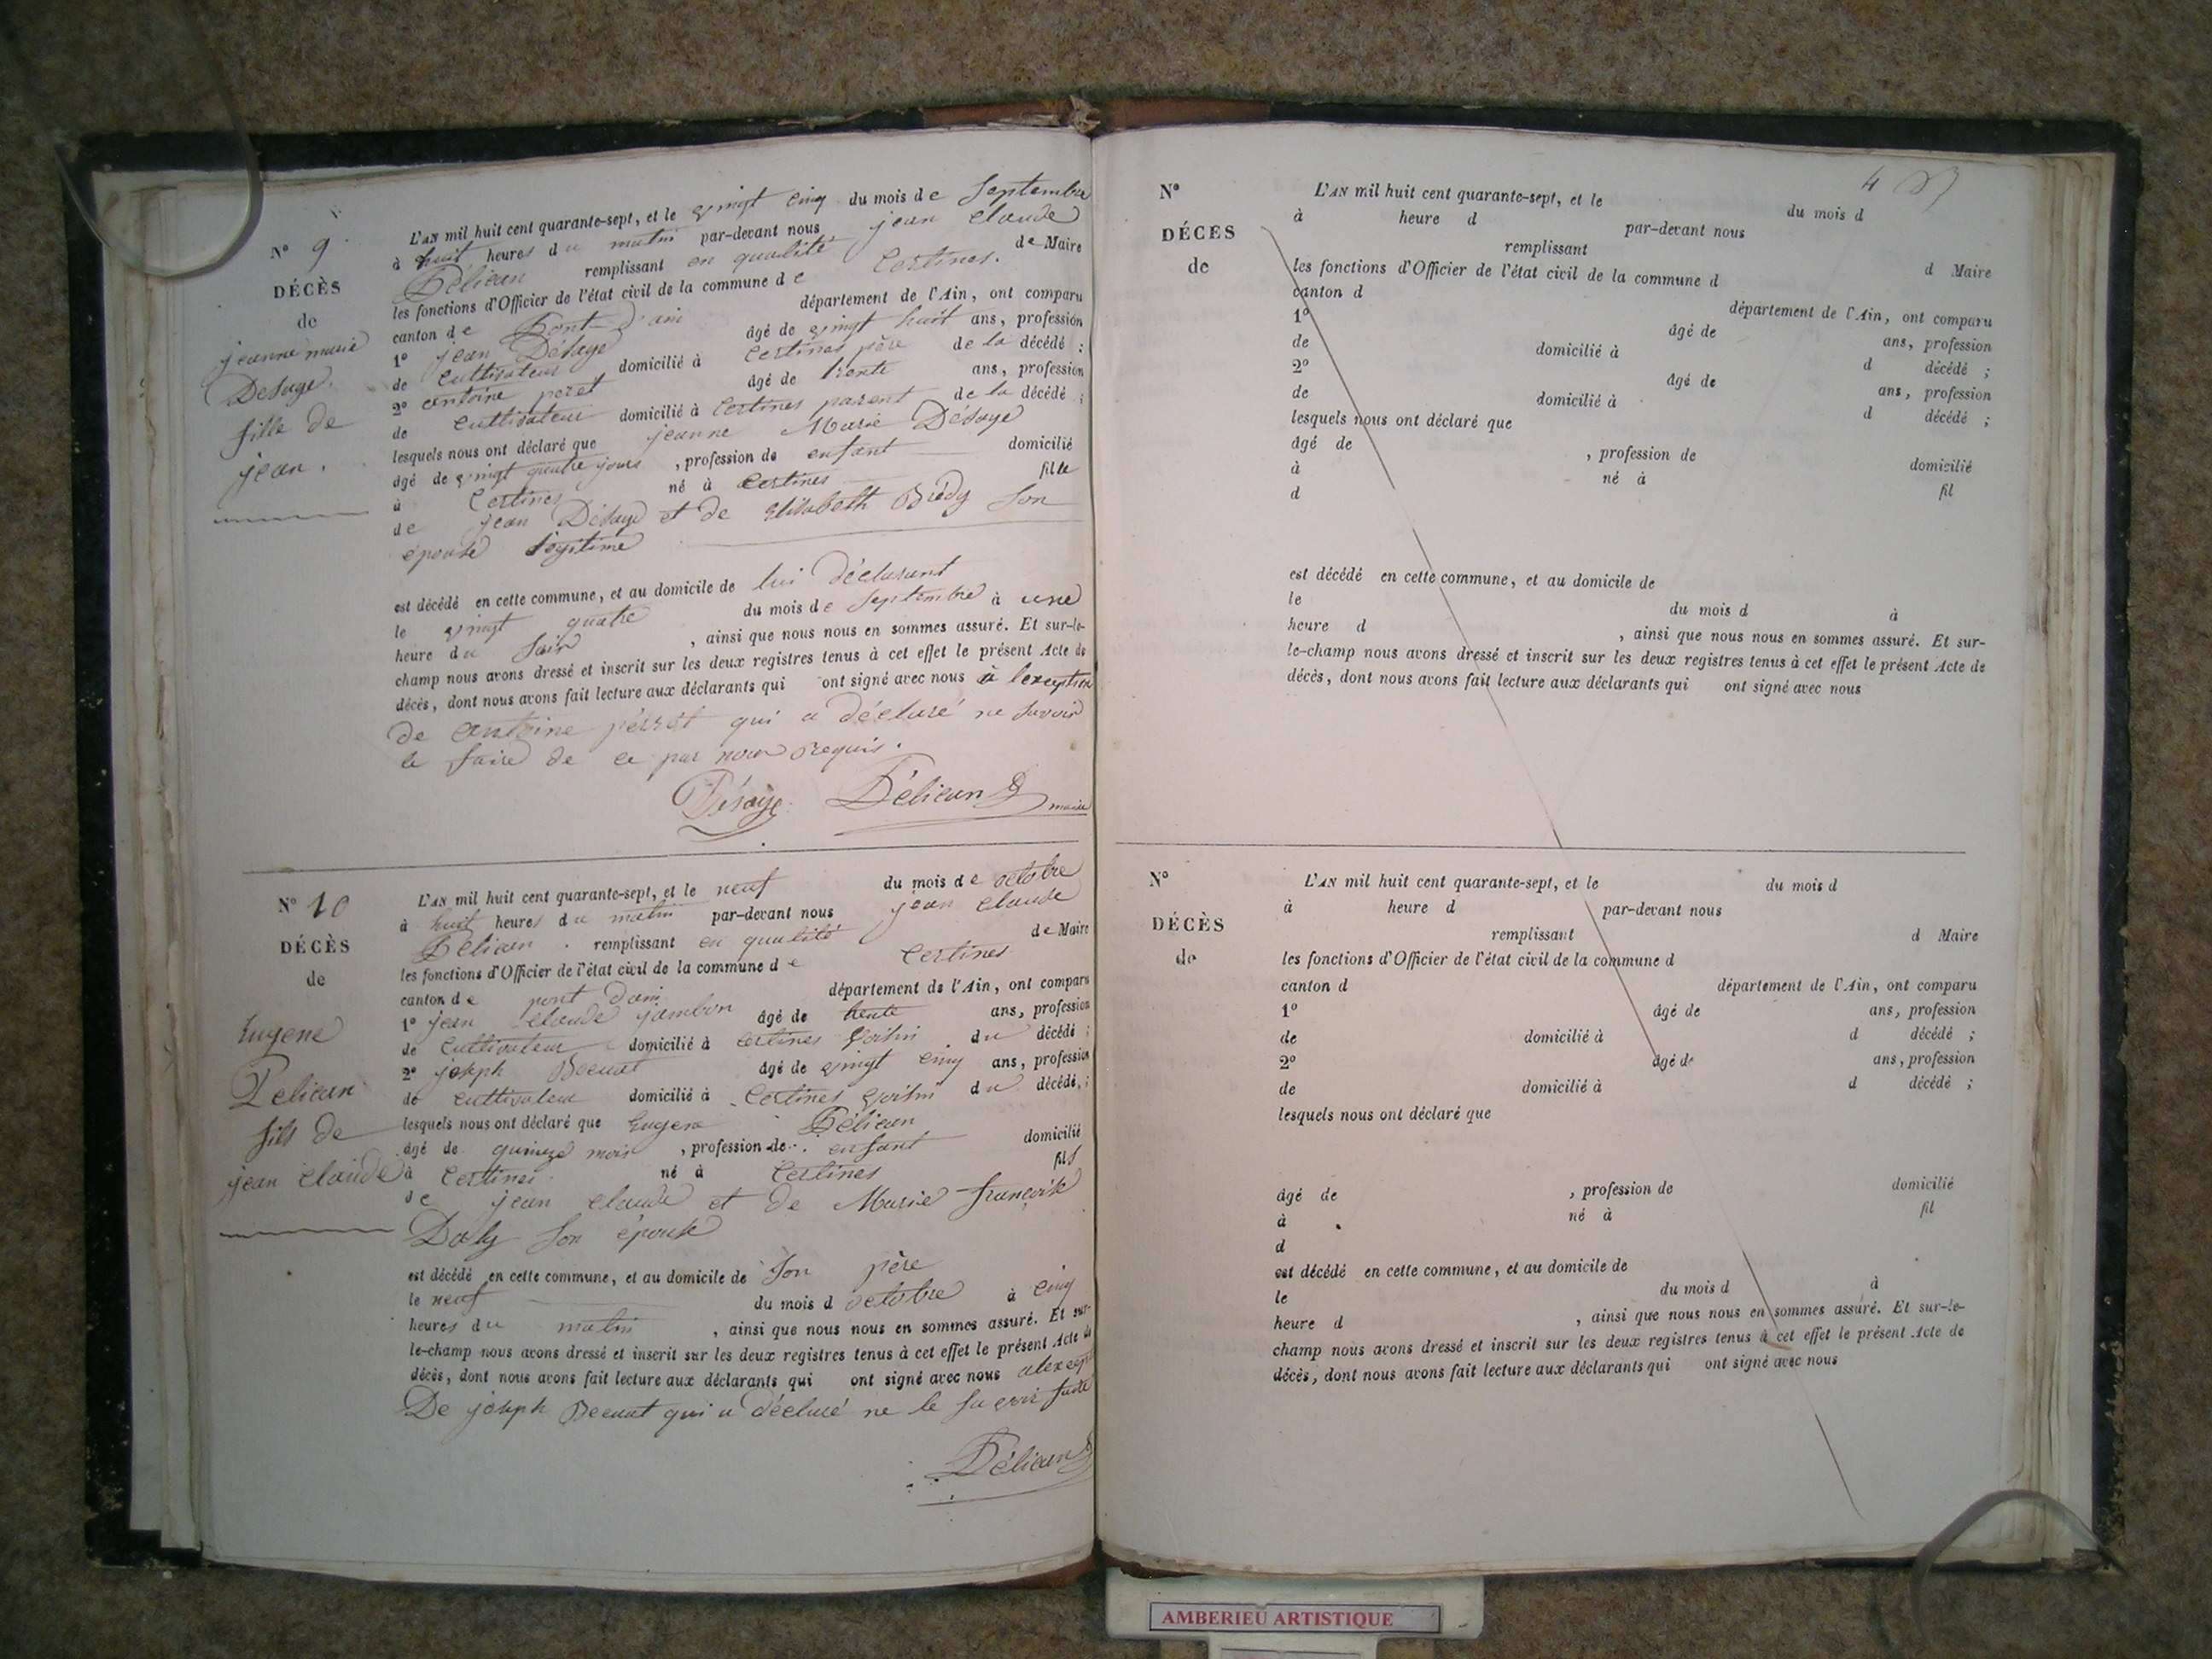 N° 9
DÉCÈS
de
jeanne marie
Desaye.
fille de
jean.
L'AN mil huit cent quarante-sept, et le vingt cinq du mois de Septembre
à huit heures du matin par-devant nous jean claude
Pélican remplissant en qualité de Maire
les fonctions d'Officier de l'état civil de la commune de Certines.
canton de Pont-d'ain département de l'Ain, ont comparu
1° jean Désaye âgé de vingt huit ans, profession
de cultivateur domicilié à Certines père de la décédé ;
2° antoine peret âgé de trente ans, profession
de cultivateur domicilié à Certines parent de la décédé ;
lesquels nous ont déclaré que jeanne Marie Désaye
âgé de vingt quatre jours, profession de enfant domicilié
à Certines né à Certines fille
de jean Désaye et de Elisabeth Brédy son
épouse légitime
est décédé en cette commune, et au domicile de lui déclarant
le vingt quatre du mois de Septembre à une
heure du soir, ainsi que nous nous en sommes assuré. Et sur-le-
champ nous avons dressé et inscrit sur les deux registres tenus à cet effet le présent Acte de
décès, dont nous avons fait lecture aux déclarants qui ont signé avec nous à l'exception
de antoine perret qui a déclaré ne savoir
le faire de ce par nous requis.
Désaye Pélican maire
N° 10
DÉCÈS
de
Eugene
Pelican
fils de
jean claude
L'AN mil huit cent quarante-sept, et le neuf du mois de octobre
à huit heures du matin par-devant nous jean claude
Pélican. remplissant en qualité de Maire
les fonctions d'Officier de l'état civil de la commune de Certines
canton de pont dain département de l'Ain, ont comparu
1° jean claude jambon âgé de trente ans, profession
de cultivateur domicilié à Certines voisin du décédé ;
2° joseph Becuat âgé de vingt cinq ans, profession
de cultivateur domicilié à Certines voisin du décédé ;
lesquels nous ont déclaré que Eugene Pélican
âgé de quinze mois, profession de enfant domicilié
à Certines né à Certines fils
de jean claude et de Marie françoise
Daly son épouse
est décédé en cette commune, et au domicile de son père
le neuf du mois d octobre à cinq
heures du matin, ainsi que nous nous en sommes assuré. Et sur-
le-champ nous avons dressé et inscrit sur les deux registres tenus à cet effet le présent Acte de
décès, dont nous avons fait lecture aux déclarants qui ont signé avec nous alexcep
De joseph Becuat qui a déclaré ne le savoir faire
Pélican
N°
DÉCÈS
de
L'AN mil huit cent quarante-sept, et le du mois d
à heure d par-devant nous
remplissant d Maire
les fonctions d'Officier de l'état civil de la commune d
canton d département de l'Ain, ont comparu
1° âgé de ans, profession
de domicilié à d décédé ;
2° âgé de ans, profession
de domicilié à d décédé ;
lesquels nous ont déclaré que
âgé de , profession de domicilié
à né à fil
d
est décédé en cette commune, et au domicile de
le du mois d à
heure d , ainsi que nous nous en sommes assuré. Et sur-
le-champ nous avons dressé et inscrit sur les deux registres tenus à cet effet le présent Acte de
décès, dont nous avons fait lecture aux déclarants qui ont signé avec nous
N°
DÉCÈS
de
L'AN mil huit cent quarante-sept, et le du mois d
à heure d par-devant nous
remplissant d Maire
les fonctions d'Officier de l'état civil de la commune d
canton d département de l'Ain, ont comparu
1° âgé de ans, profession
de domicilié à d décédé ;
2° âgé de ans, profession
de domicilié à d décédé ;
lesquels nous ont déclaré que
âgé de , profession de domicilié
à né à fil
d
est décédé en cette commune, et au domicile de
le du mois d à
heure d , ainsi que nous nous en sommes assuré. Et sur-le-
champ nous avons dressé et inscrit sur les deux registres tenus à cet effet le présent Acte de
décès, dont nous avons fait lecture aux déclarants qui ont signé avec nous
AMBERIEU ARTISTIQUE